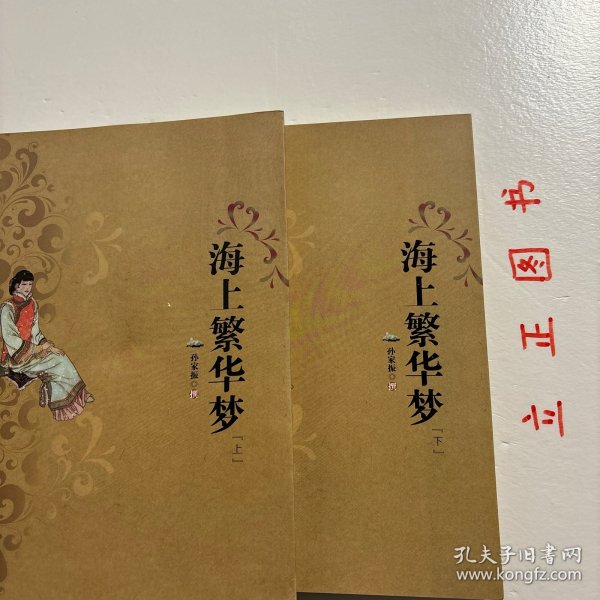 海上繁华梦
「上」
孙家振◎撰
海上繁华梦
「下」
孙家振◎撰
立正图书
孔夫子旧书网
www.kongfz.com